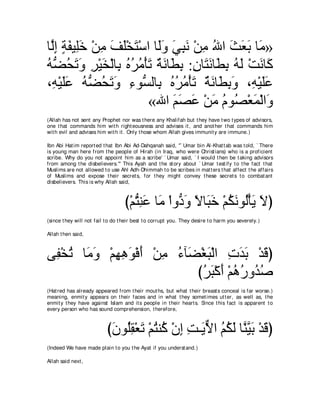 «مَا بَعَثَ اللهُ مِنْ نَبِيَ وَلَا اسْتَخْلَفَ مِنْ خَلِيفَةٍ إِلَّا
كَانَتْ لَهُ بِطَانَتَانِ: بِطَانَةٌ تَأْمُرُهُ بِالْخَيْرِ وَتَحُضُّهُ
عَلَيْهِ، وَبِطَانَةٌ تَأْمُرُهُ بِالسُّوءِ وَتَحُضُّهُ عَلَيْهِ،
وَالْمَعْصُومُ مَنْ عَصَمَ اللهُ»
(Allah has not sent any Prophet nor was there any Khalifah but they have two types of advisors,
one that commands him with righteousness and advises it, and another that commands him
with evil and advises him with it. Only those whom Allah gives immunity are immune.)
Ibn Abi Hatim reported that Ibn Abi Ad-Dahqanah said, "`Umar bin Al-Khattab was told, `There
is young man here from the people of Hirah (in Iraq, who were Christians) who is a proficient
scribe. Why do you not appoint him as a scribe' `Umar said, `I would then be taking advisors
from among the disbelievers.'" This Ayah and the story about `Umar testify to the fact that
Muslims are not allowed to use Ahl Adh-Dhimmah to be scribes in matters that affect the affairs
of Muslims and expose their secrets, for they might convey these secrets to combatant
disbelievers. This is why Allah said,
(لاَ يَأْلُونَكُمْ خَبَالاً وَدُّواْ مَا عَنِتُّمْ)
(since they will not fail to do their best to corrupt you. They desire to harm you severely.)
Allah then said,
(قَدْ بَدَتِ الْبَغْضَآءُ مِنْ أَفْوَهِهِمْ وَمَا تُخْفِى
صُدُورُهُمْ أَكْبَرُ)
(Hatred has already appeared from their mouths, but what their breasts conceal is far worse.)
meaning, enmity appears on their faces and in what they sometimes utter, as well as, the
enmity they have against Islam and its people in their hearts. Since this fact is apparent to
every person who has sound comprehension, therefore,
(قَدْ بَيَّنَّا لَكُمُ الاٌّيَـتِ إِنْ كُنتُمْ تَعْقِلُونَ)
(Indeed We have made plain to you the Ayat if you understand.)
Allah said next,